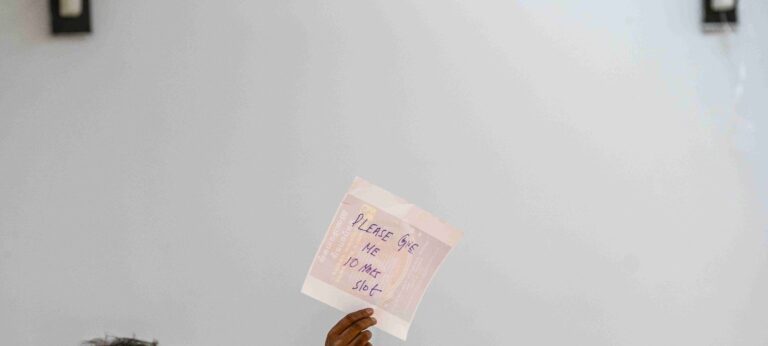 PLEASE GIVE
ME
10 MNTS
SLOT